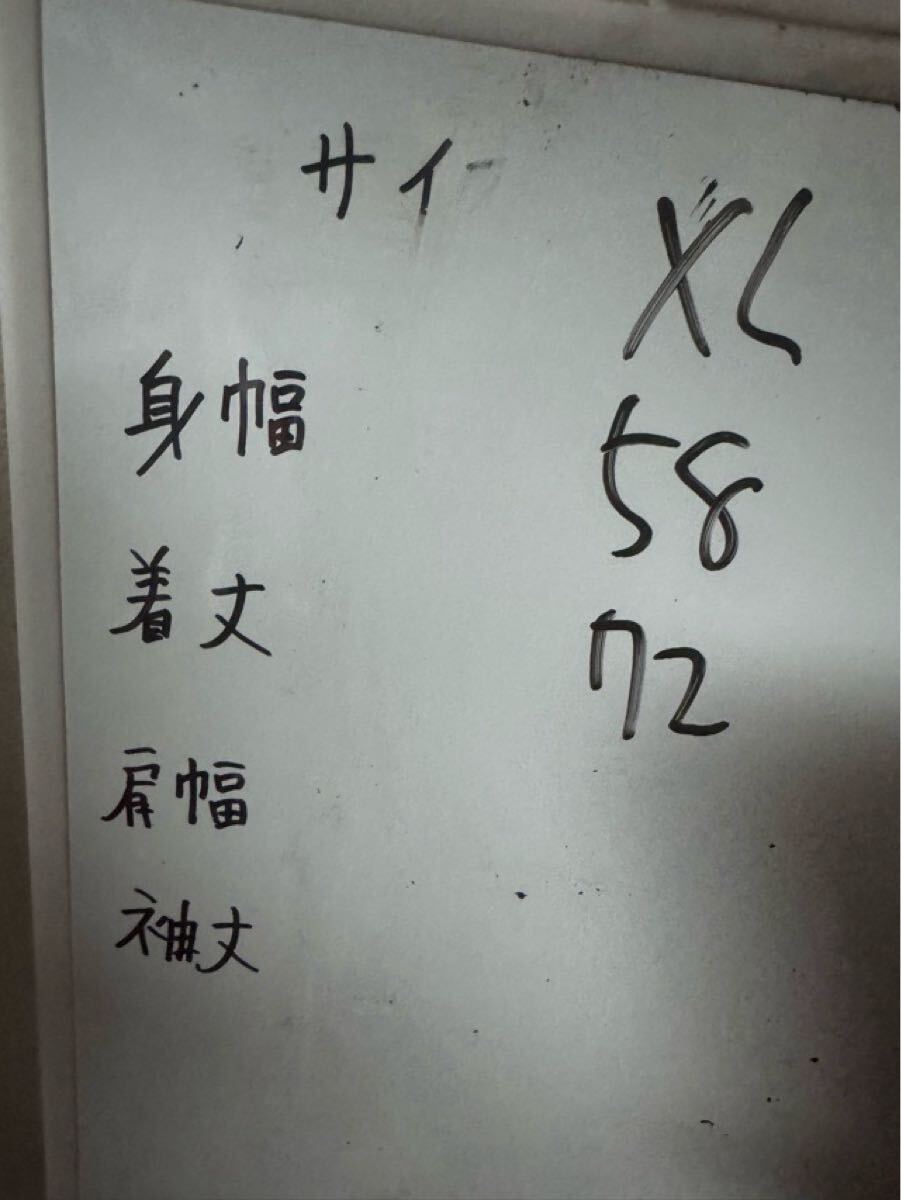 サイ
XL
身幅 58
着丈 72
肩幅
袖丈